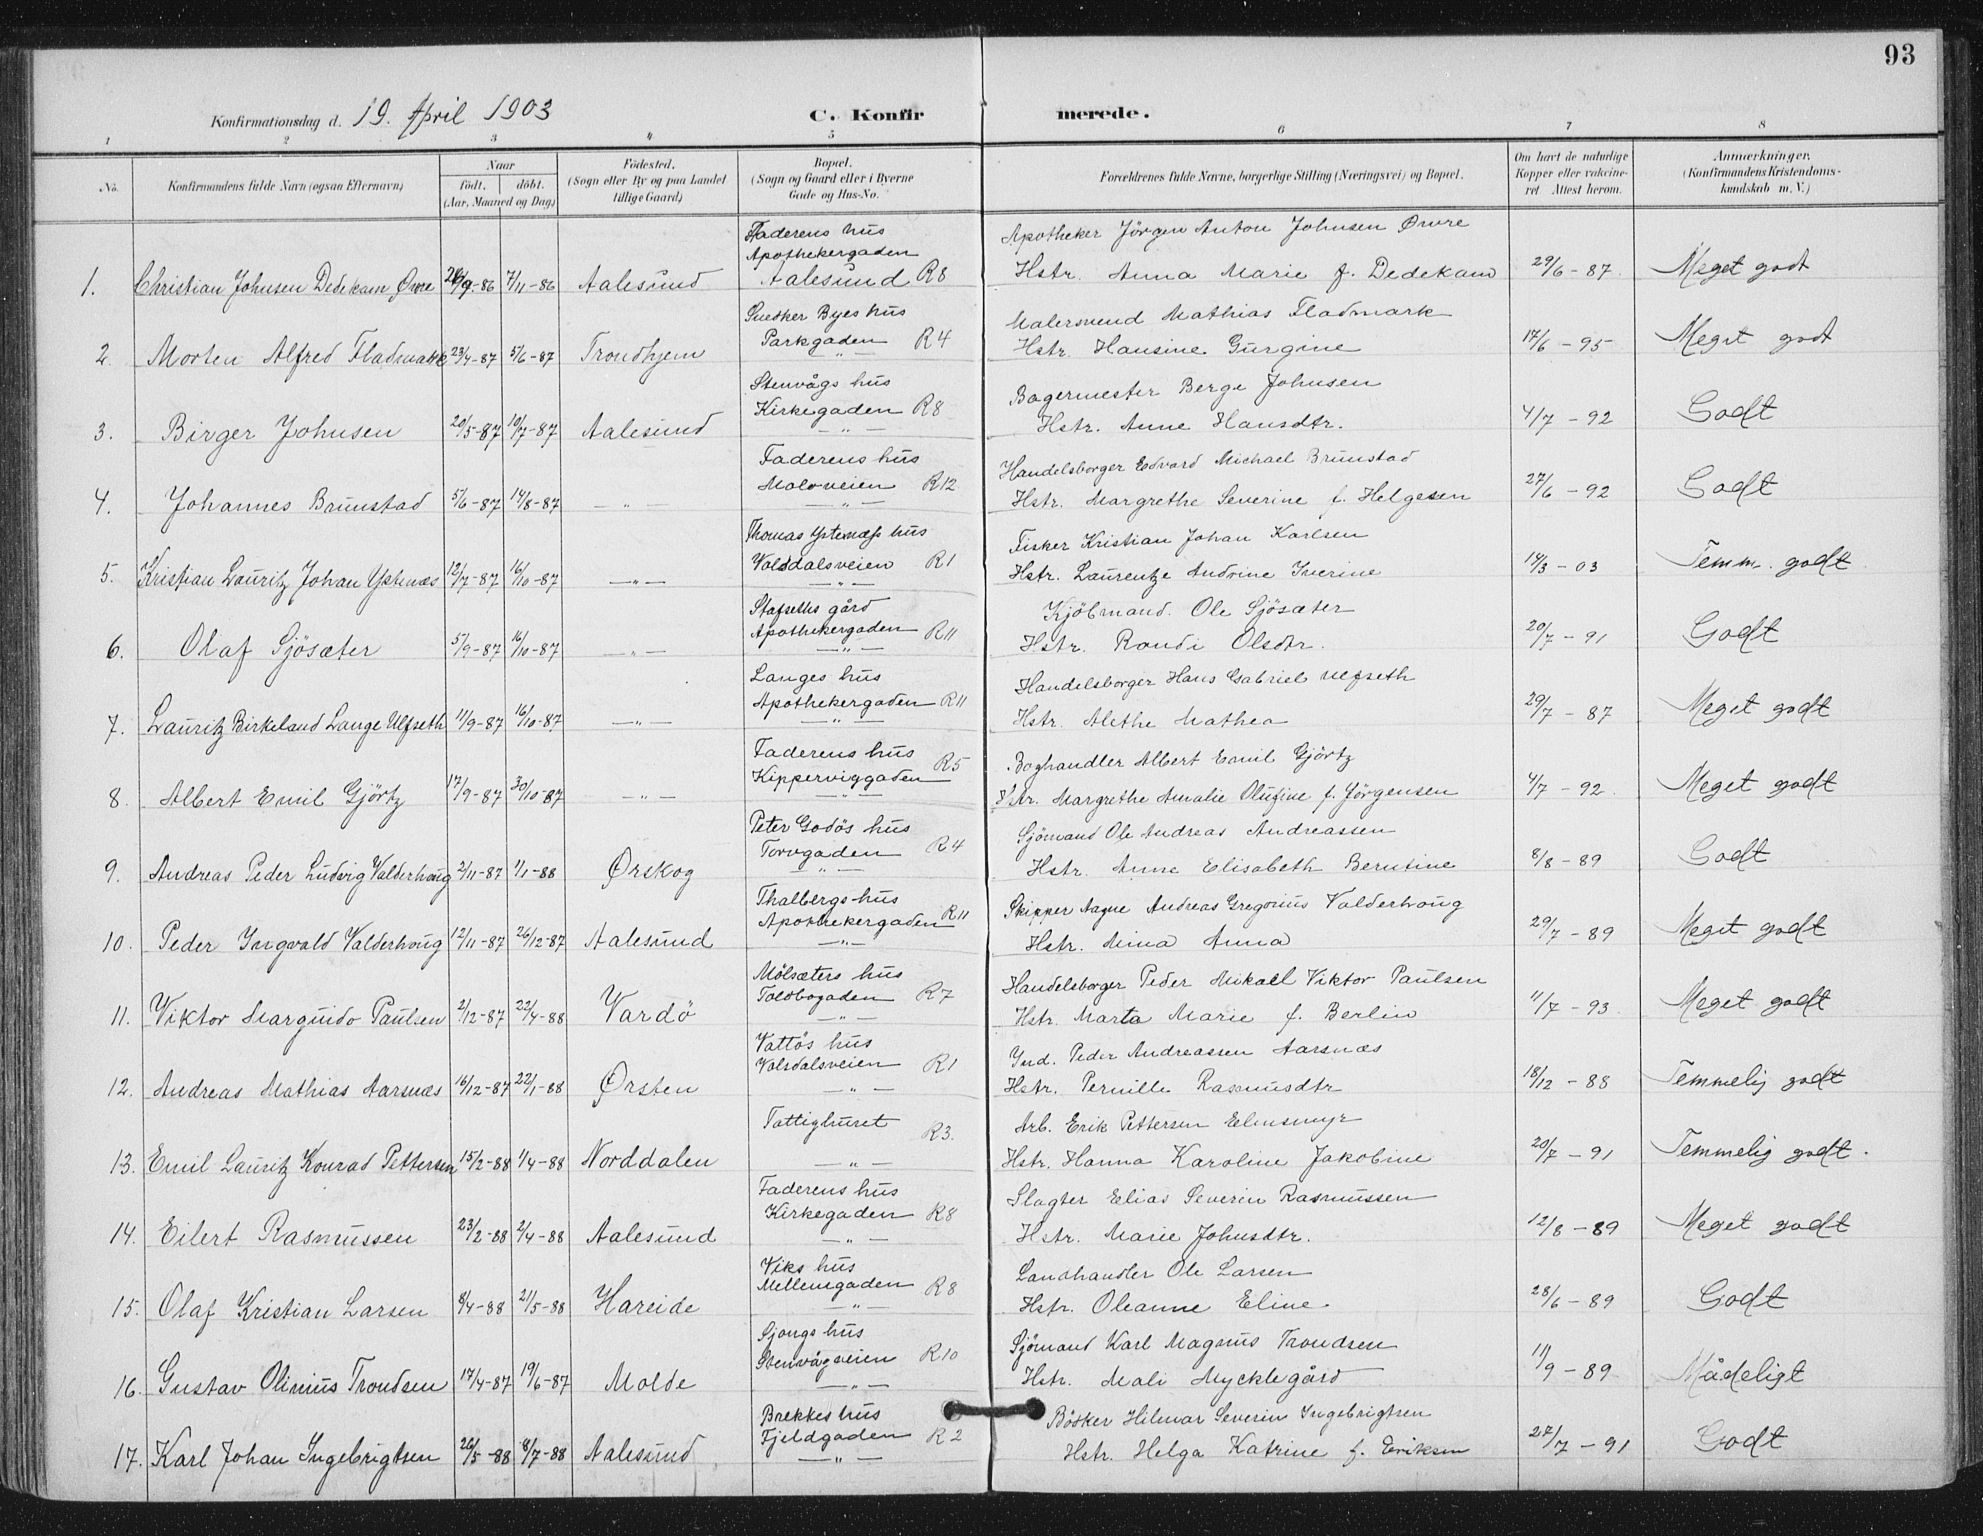 93
Konfirmationsdag d. 19. April 1903 C. Konfirmerede.
1 2 3 4 5 6 7 8
No. Konfirmandens fulde Navn (ogsaa Efternavn) Naar født. døbt. (Aar, Maaned og Dag) Fødested. (Sogn eller By og paa Landet tillige Gaard) Bopæl. (Sogn og Gaard eller i Byerne Gade og Hus-No. Forældrenes fulde Navne, borgerlige Stilling (Næringsvei) og Bopæl. Om havt de naturlige Kopper eller vakcineret Attest herom. Anmærkninger. (Konfirmandens Kristendomskundskab m. V.)
Faderens hus Apotheker Jörgen Anton Johnsen Øvre
Apothekergaden
1. Christian Johnsen Dedekam Øvre /9-86 7/11-86 Aalesund Aalesund R8 Hstr. Anna Marie f. Dedekam 29/6-87 Meget godt
Snedker Byes hus Malersvend Mathias Fladmark
2. Morten Alfred Fladmark 23/4-87 5/6-87 Trondhjem Parkgaden R4 Hstr. Hansine Gurgine 17/6-95 Meget godt
Stenvågs hus Bagermester Berge Johnsen
Kirkegaden R8
3. Birger Johnsen 20/5-87 10/7-87 Aalesund — " — Hstr. Anne Hansdtr. 4/7-92 Godt
Faderens hus Handelsborger Edvard Michael Brunstad
Moloveien R12
4. Johannes Brunstad 5/6-87 14/8-87 — " — — " — Hstr. Margrethe Severine f. Helgesen 27/6-92 Godt
Thomas Ystenæss hus Fisker Kristian Johan Karlsen
Volsdalsveien R1
5. Kristian Lauritz Johan Ystenæs 12/7-87 16/10-87 — " — — " — Hstr. Laurentze Andrine Iverine 14/3-03 Temm. godt
Stafseths gård Kjöbmand. Ole Sjösæter
Apothekergaden R11
6. Olaf Sjösæter 5/9-87 16/10-87 — " — — " — Hstr. Randi Olsdtr. 20/7-91 Godt
Langes hus Handelsborger Hans Gabriel Ulfseth
Apothekergaden R11
7. Lauritz Birkeland Lange Ulfseth 11/9-87 16/10-87 — " — — " — Hstr. Alethe Mathea 29/7-87 Meget godt
Faderens hus Boghandler Albert Emil Gjörtz
Kipperviggaden R5
8. Albert Emil Gjörtz 17/9-87 30/10-87 — " — — " — Hstr. Margrethe Amalie Olufine f. Jörgensen 4/7-92. Meget godt
Peter Godös hus Sjömand Ole Andreas Andreassen
Torvgaden R4
9. Andreas Peder Ludvig Valderhoug 2/11-87 1/1-88 Ørskog — " — Hstr. Anne Elisabeth Berntine 8/8-89 Godt
Thalbergs hus Skipper Aagne Andreas Gregorius Valderhoug
Apothekergaden R11
10. Peder Ingvald Valderhoug 12/11-87 26/12-87 Aalesund — " — Hstr. Nina Anna 29/7-89 Meget godt
Mölsæters hus Handelsborger Peder Mikael Viktor Paulsen
Toldbogaden R7
11. Viktor Marquido Paulsen 2/12-87 22/4-88 Vardö — " — Hstr. Marta Marie f. Berlin 11/7-93 Meget godt
Vattös hus Ind. Peder Andreassen Aarsnæs
Volsdalsveien R1
12. Andreas Mathias Aarsnæs 16/12-87 22/1-88 Ørsten — " — Hstr. Pernille Rasmusdtr 18/12-88 Temmelig godt
Fattighuset R3. Arb. Erik Pettersen Elmsmyr
13. Emil Lauritz Konrad Pettersen 15/2-88 1/4-88 Norddalen — " — Hstr. Hanna Karoline Jakobine 20/7-91 Temmelig godt.
Faderens hus Slagter Elias Severin Rasmussen
Kirkegaden R8
14. Eilert Rasmussen 23/2-88 2/4-88 Aalesund — " — Hstr. Marie Johnsdtr. 12/8-89 Meget godt
Viks hus Landhandler Ole Larsen
Mellemgaden R8
15. Olaf Kristian Larsen 8/4-88 21/5-88 Hareide — " — Hstr. Oleanne Eline. 28/6-89 Godt
Sjongs hus Sjömand Karl Magnus Trondsen
Stenvågveien R10
16. Gustav Olinius Trondsen 17/4-87 19/6-87 Molde — " — Hstr. Mali Mycklegård 11/9-89 Mådeligt
Brekkes hus Bödker Hilmar Severin Ingebrigtsen
Fjeldgaden R2
17. Karl Johan Ingebrigtsen 26/5-88 8/7-88 Aalesund — " — Hstr. Helga Katrine f. Eriksen 27/7-91 Godt